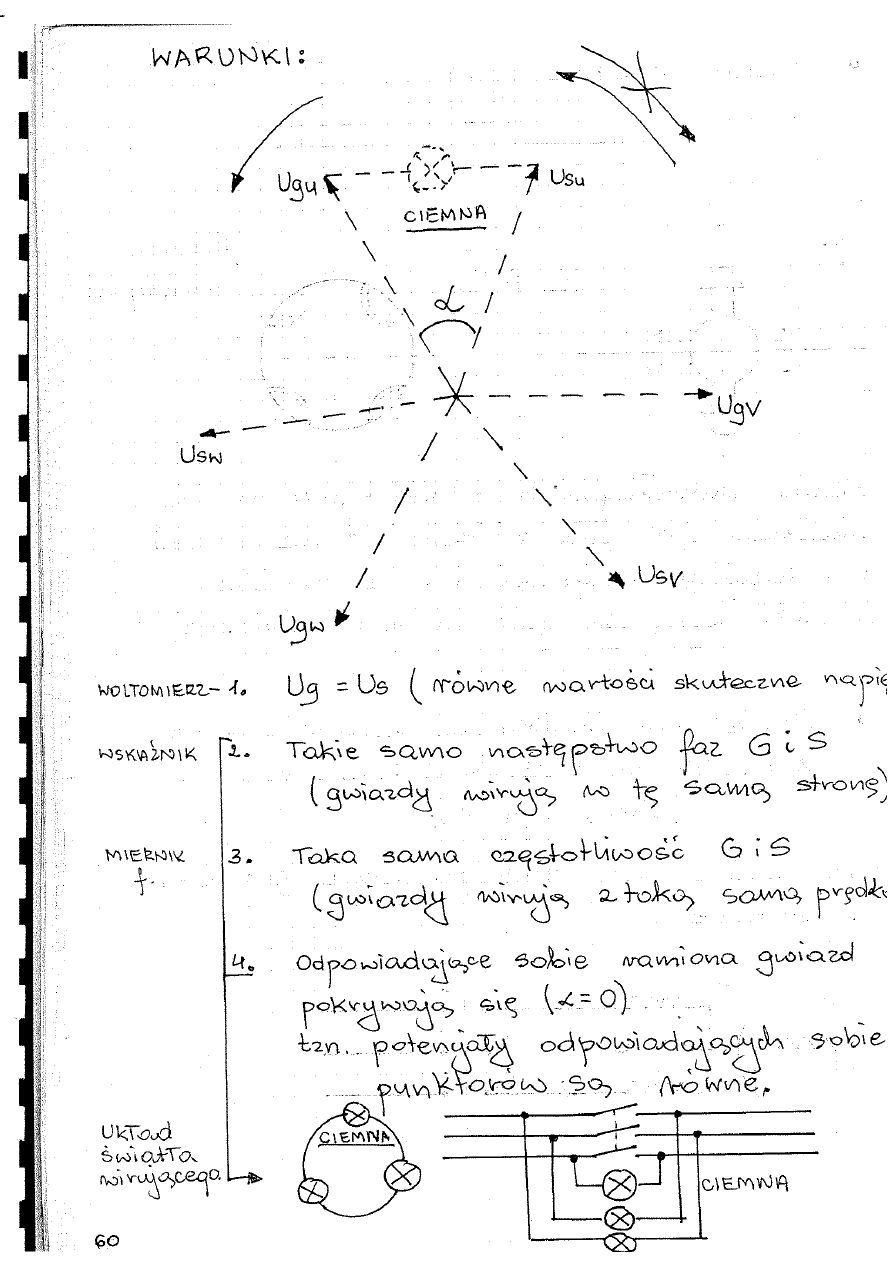 WARUNKI:
Ugu
Usu
CIEMNA
α
UgV
Usw
UsV
Ugw
WOLTOMIERZ- 1. Ug = Us ( równe wartości skuteczne napię
WSKAŹNIK 2. Takie samo następstwo faz G i S
(gwiazdy wirują w tę samą stronę)
MIERNIK 3. Taka sama częstotliwość G i S
f. (gwiazdy wirują z taką samą prędk
4. Odpowiadające sobie ramiona gwiazd
pokrywają się (α=0)
tzn. potencjały odpowiadających sobie
punktorów są równe.
UKŁAD
światła
wirującego
CIEMNA
CIEMNA
60